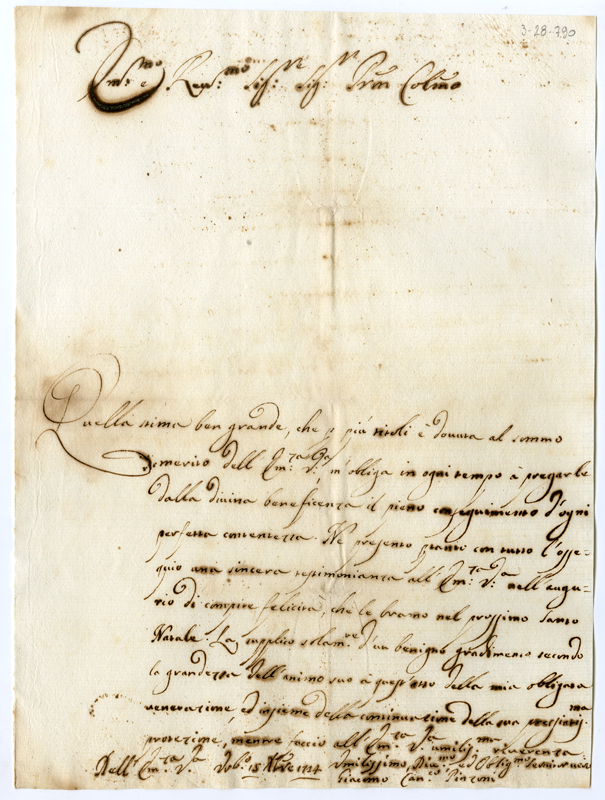 3-28-790
Em:mo e Rev:mo Sig:re Sig:r Prõn Colmo
Quella stima ben grande, che p più titoli è dovuta al sommo
merito dell' Em:za V:ra, m'obliga in ogni tempo à pregarle
dalla divina beneficenza il pieno conseguimento d'ogni
perfetta contentezza. Ne presento ptanto con tutto l'osse-
quio una sincera testimonianza all' Em:za V:ra nell'augu-
rio di compite felicità, che le bramo nel prossimo Santo
Natale. La supplico solam:te d'un benigno gradimento secondo
la grandezza dell'animo suo à quest'atto della mia obligata
venerazione, ed insieme della continuazione della sua pregiatis:ma
protezione, mentre faccio all' Em:za V:ra umilis:ma riverenza
Dell' Em:za V:ra 15 Xbre 1724 Umilissimo, Div:mo ed Oblig:mo
Giacomo Can:co Pinzoni